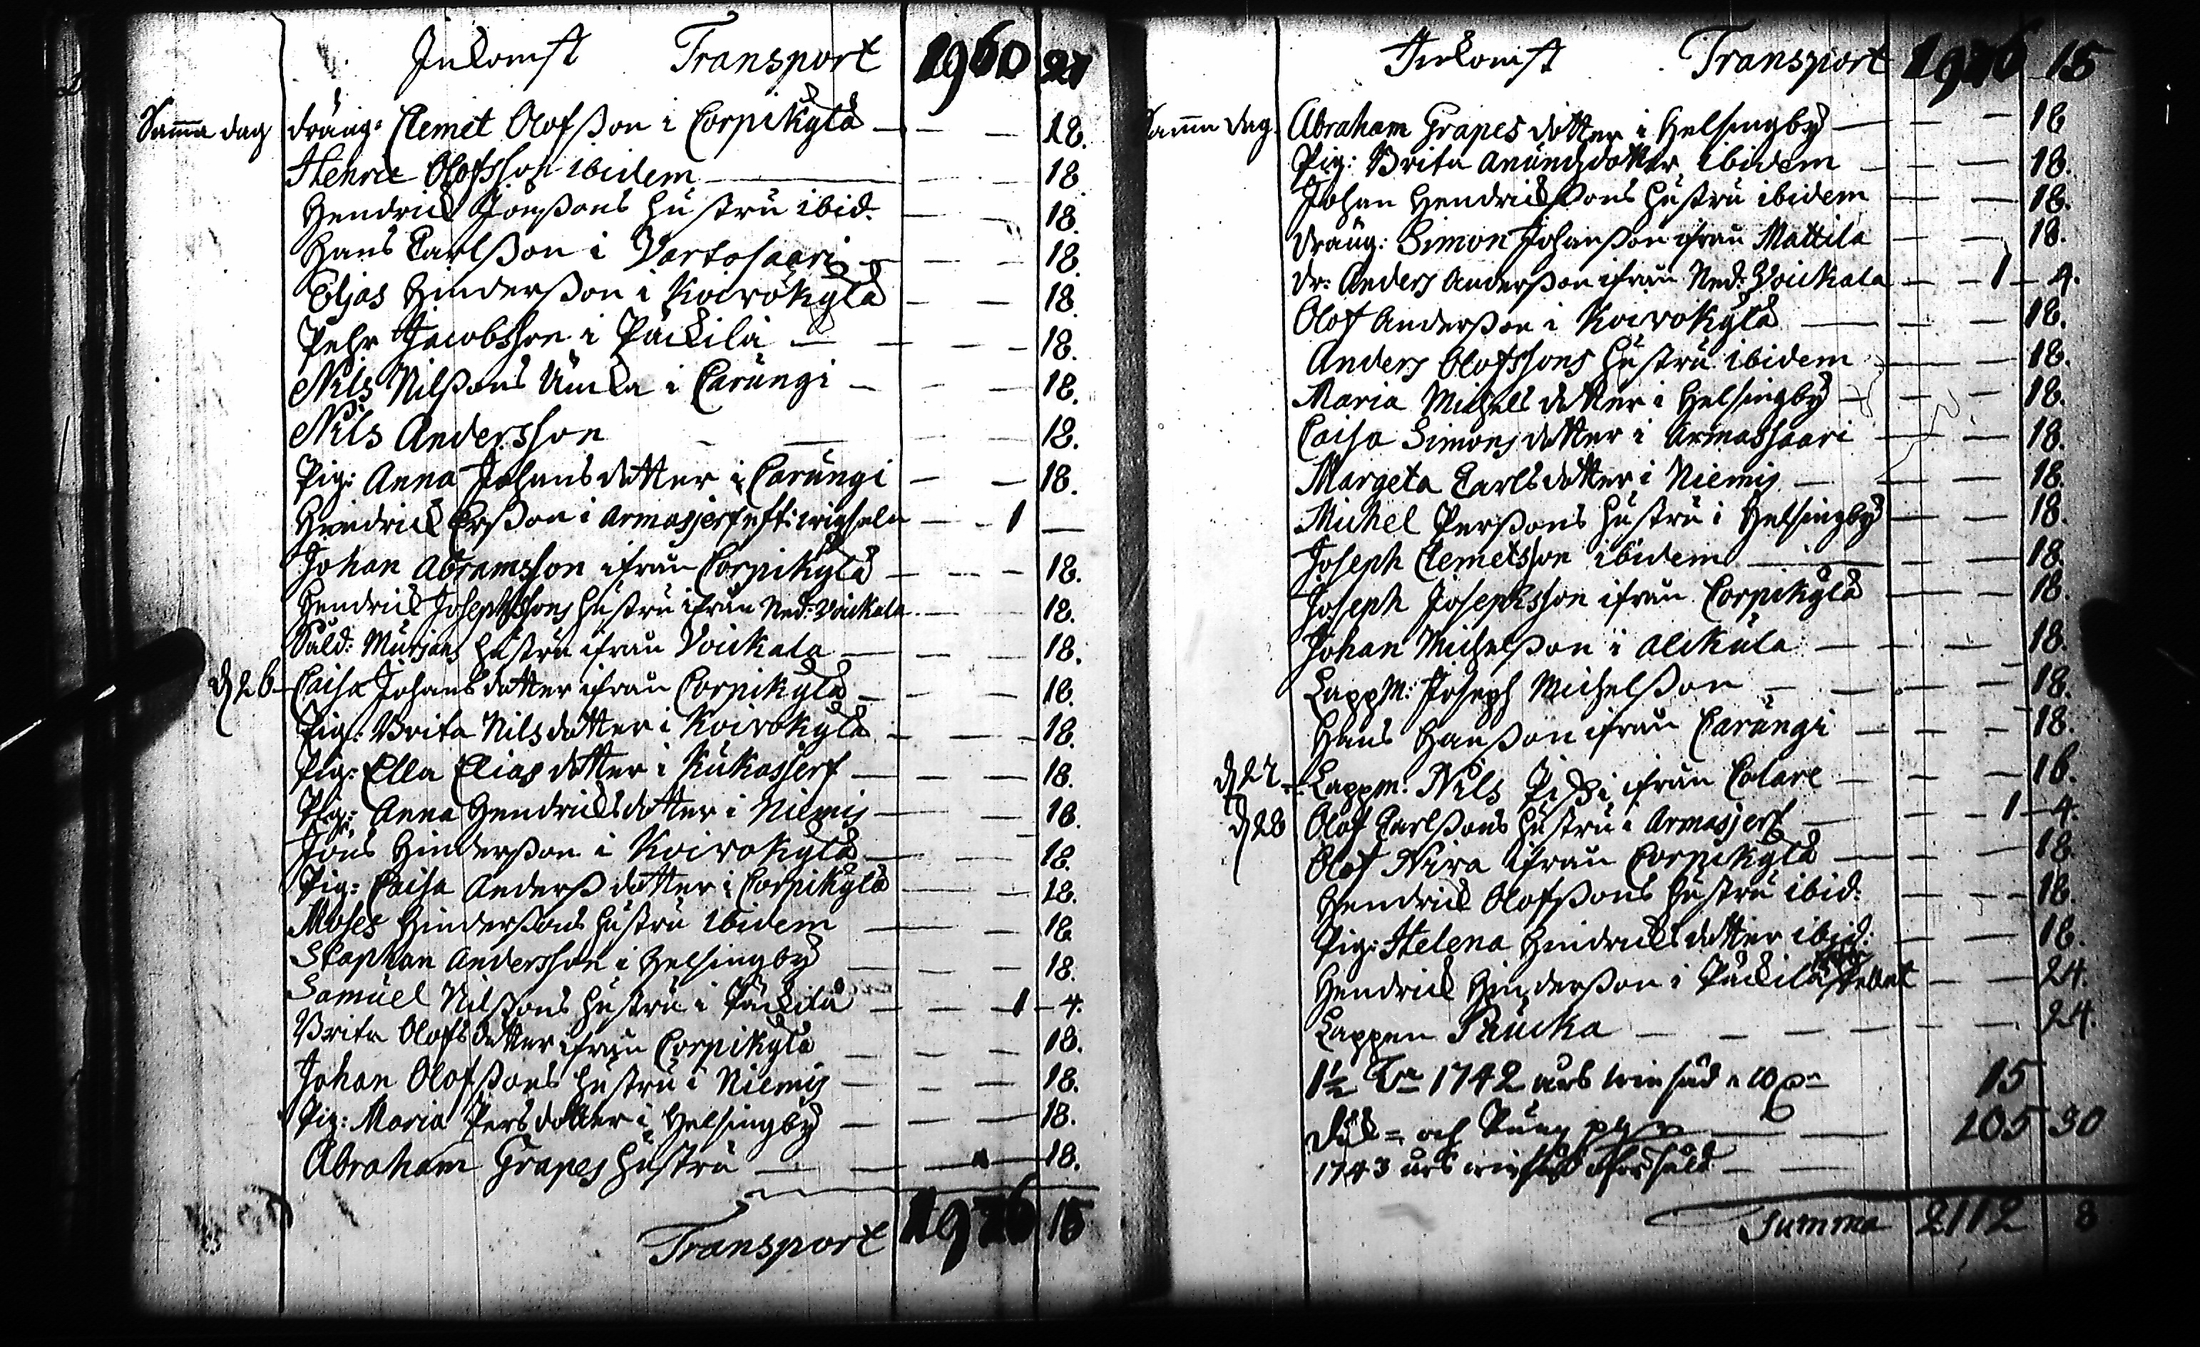 Inkomst Transport 1960 27
Samma dag dräng: Clemet Olofsson i Corpikylä — — 18.
Henric Olofsson ibidem — — 18
Hendrick Jonssons hustru ibid. — — 18.
Hans Carlsson i Vartosaari — — 18.
Eljas Hindersson i Koivokylä — — 18.
Pehr Jacobsson i Päckilä — — 18.
Nils Nilssons i Carungi — — 18.
Nils Andersson — — 18.
Pig: Anna Johansdotter i Carungi — — 18.
Hendrick Ersson i Armasjerf — 1 —
Johan Abramsson ifrån Corpikylä — — 18.
Hendrick Josephssons hustru ifrån Ned: Voickala — — 18.
Sald: Mursans hustru ifrån Voickala — — 18.
d 26 Caisa Johansdotter ifrån Corpikylä — — 18.
Pig: Brita Nilsdotter i Koivokylä — — 18.
Pig: Ella Elias dotter i Kukasjerf — — 18.
Pig: Anna Hendricksdotter i Niemis — — 18.
Jöns Hindersson i Koivokylä — — 18.
Pig: Caisa Anderss dotter i Corpikylä — — 18.
Moses Hinderssons hustru ibidem — — 18
Staphan Andersson i Helsingby — — 18.
Samuel Nilssons hustru i Päckilä — 1 — 4.
Brita Olofsdotter ifrån Corpikylä — — 18.
Johan Olofssons hustru i Niemis — — 18.
Pig: Maria Persdotter i Helsingby — — 18.
Abraham Grapes hustru — — 18.
Transport 1976 15
Inkomst Transport 1976 15
Samma dag. Abraham Grapes dotter i Helsingby — — 18
Pig: Brita Anundzdotter ibidem — — 18.
Johan Hendrickssons hustru ibidem — — 18.
Dräng: Simon Johansson ifrån Mattila — — 18.
Dr: Anders Andersson ifrån Ned: Voickala — 1 — 4.
Olof Andersson i Koivokylä — — 18.
Anders Olofssons hustru ibidem — — 18.
Maria Michelsdotter i Helsingby — — 18.
Caisa Simonsdotter i Armassaari — — 18.
Margeta Carlsdotter i Niemis — — 18.
Michel Perssons hustru i Helsingby — — 18.
Joseph Clemetsson ibidem — — 18.
Joseph Josephsson ifrån Corpikylä — — 18
Johan Michelsson i Alckula — — 18.
Lappm: Joseph Michelsson — — 18.
Hans Hansson ifrån Carungi — — 18.
d 27 Lappm: Nils ifrån Colare — — 16.
d 28 Olof Carlssons hustru i Armasjerf — 1 — 4.
Olof Nira ifrån Corpikylä — — 18.
Hendrick Olofssons hustru ibid: — — 18.
Pig: Helena Hindricksdotter ibid: — — 18.
Hendrick Hindersson i Päckilä — — 24.
Lappen Paucka — — 24.
1½ 1742 års winsäd a 10 15
och Pung 105 30
1743 års
Summa 2112 8